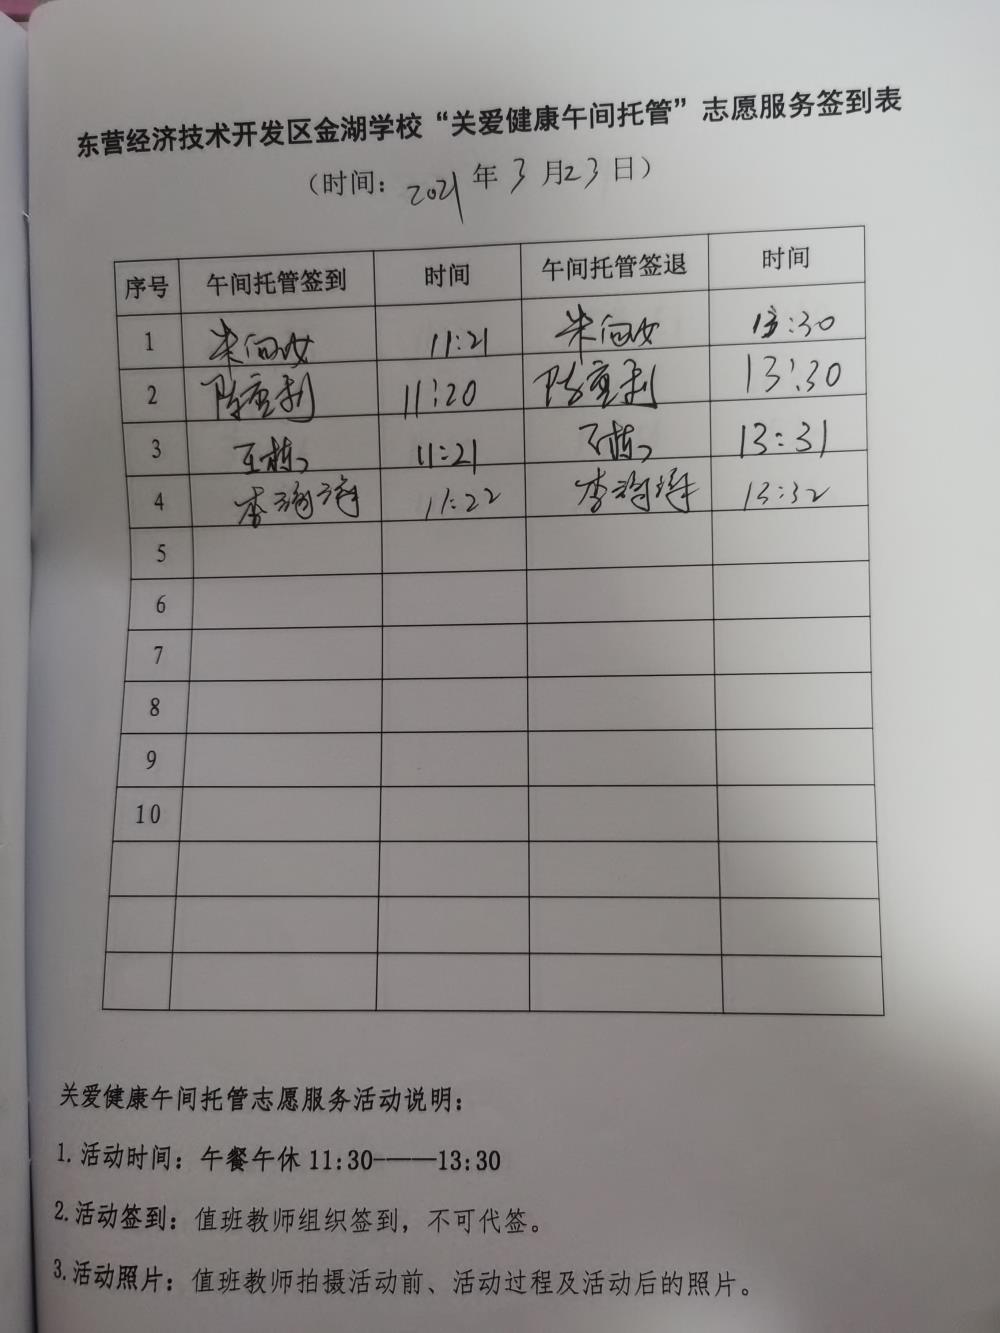 东营经济技术开发区金湖学校“关爱健康午间托管”志愿服务签到表
（时间：2021年3月23日）
序号 午间托管签到 时间 午间托管签退 时间
1 11:21 13:30
2 11:20 13:30
3 11:21 13:31
4 11:22 13:32
5
6
7
8
9
10
关爱健康午间托管志愿服务活动说明：
1.活动时间：午餐午休 11:30——13:30
2.活动签到：值班教师组织签到，不可代签。
3.活动照片：值班教师拍摄活动前、活动过程及活动后的照片。